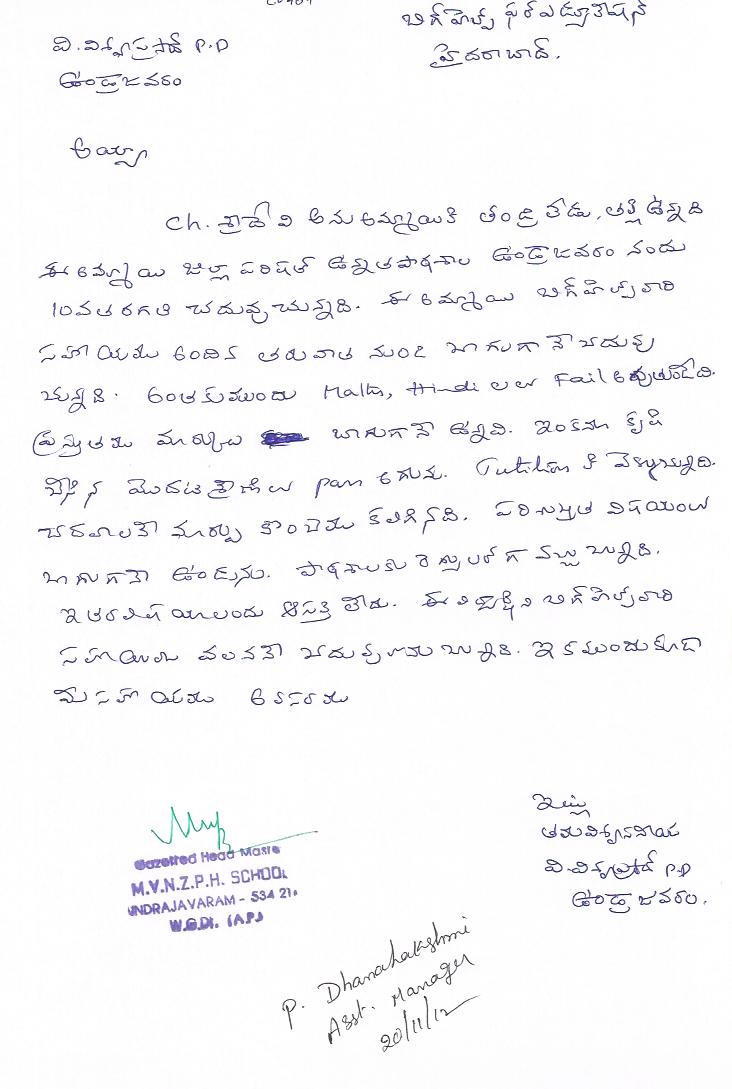 బిగ్ హెల్ప్ ఫర్ ఎడ్యుకేషన్
హైదరాబాద్.
వి.విశ్వప్రసాద్ P.D
ఉండ్రాజవరం
అయ్యా
Ch. శ్రీదేవి అను అమ్మాయికి తండ్రి లేడు, తల్లి ఉన్నది
ఈ అమ్మాయి జిల్లా పరిషత్ ఉన్నత పాఠశాల ఉండ్రాజవరం నందు
10వ తరగతి చదువుచున్నది. ఈ అమ్మాయి బిగ్ హెల్ప్ వారి
సహాయము అందిన తరువాత నుండి బాగుగానే చదువు
చున్నది. అంతకుముందు Maths, Hindi లలో Fail అవుతుండేది.
ప్రస్తుతము మార్కులు బాగుగానే ఉన్నవి. ఇంకనూ కృషి
చేసిన మొదట శ్రేణిలో pass అగును. Tution కి వెళ్ళుచున్నది.
చదవాలనే మార్పు కొంచెము కలిగినది. పరిశుభ్రత విషయంలో
బాగుగానే ఉండును. పాఠశాలకు రెగ్యులర్ గా వచ్చుచున్నది.
ఇతర విషయాలందు ఆసక్తి లేదు. ఈ విద్యార్థిని బిగ్ హెల్ప్ వారి
సహాయం వలననే చదువుకొను చున్నది. ఇక ముందు కూడా
మీ సహాయము అవసరము
ఇట్లు
తమ విశ్వాసనీయ
వి.విశ్వప్రసాద్ P.D
ఉండ్రాజవరం.
Gazetted Head Maste
M.V.N.Z.P.H. SCHOOL
UNDRAJAVARAM - 534 21
W.G.Dt. (A.P.)
P. Dhanalakshmi
Asst. Manager
20/11/12